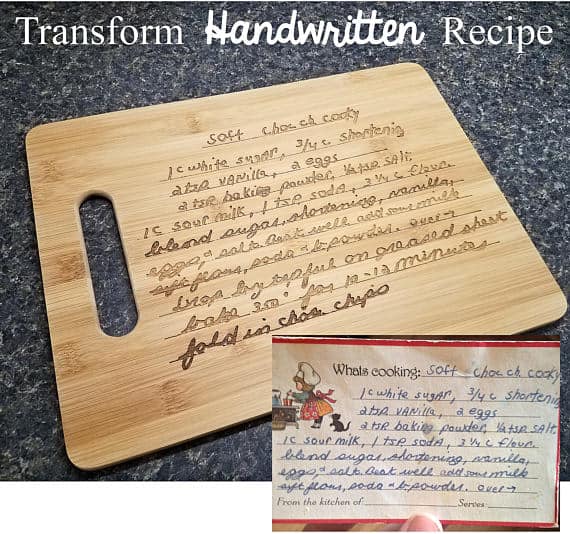 Transform Handwritten Recipe
Soft Choc ch cooky
1 c white sugar, 3/4 c shortening
2 tsp vanilla, 2 eggs
2 tsp baking powder, 1/2 tsp salt,
1 c sour milk, 1 tsp soda, 3 1/4 c flour.
blend sugar, shortening, vanilla,
eggs, & salt. Beat well add sour milk
sift flour, soda & b. powder. over →
Drop by tspful on greased sheet
bake 350° for 10-12 minutes
fold in choc chips
Whats cooking: Soft Choc ch cooky
1 c white sugar, 3/4 c shortening
2 tsp vanilla, 2 eggs
2 tsp baking powder, 1/2 tsp salt.
1 c sour milk, 1 tsp soda, 3 1/4 c flour.
blend sugar, shortening, vanilla,
eggs, & salt. Beat well add sour milk
sift flour, soda & b. powder. over →
From the kitchen of Serves: